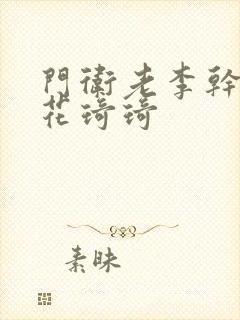 門衛老李幹
花琦琦
素昧